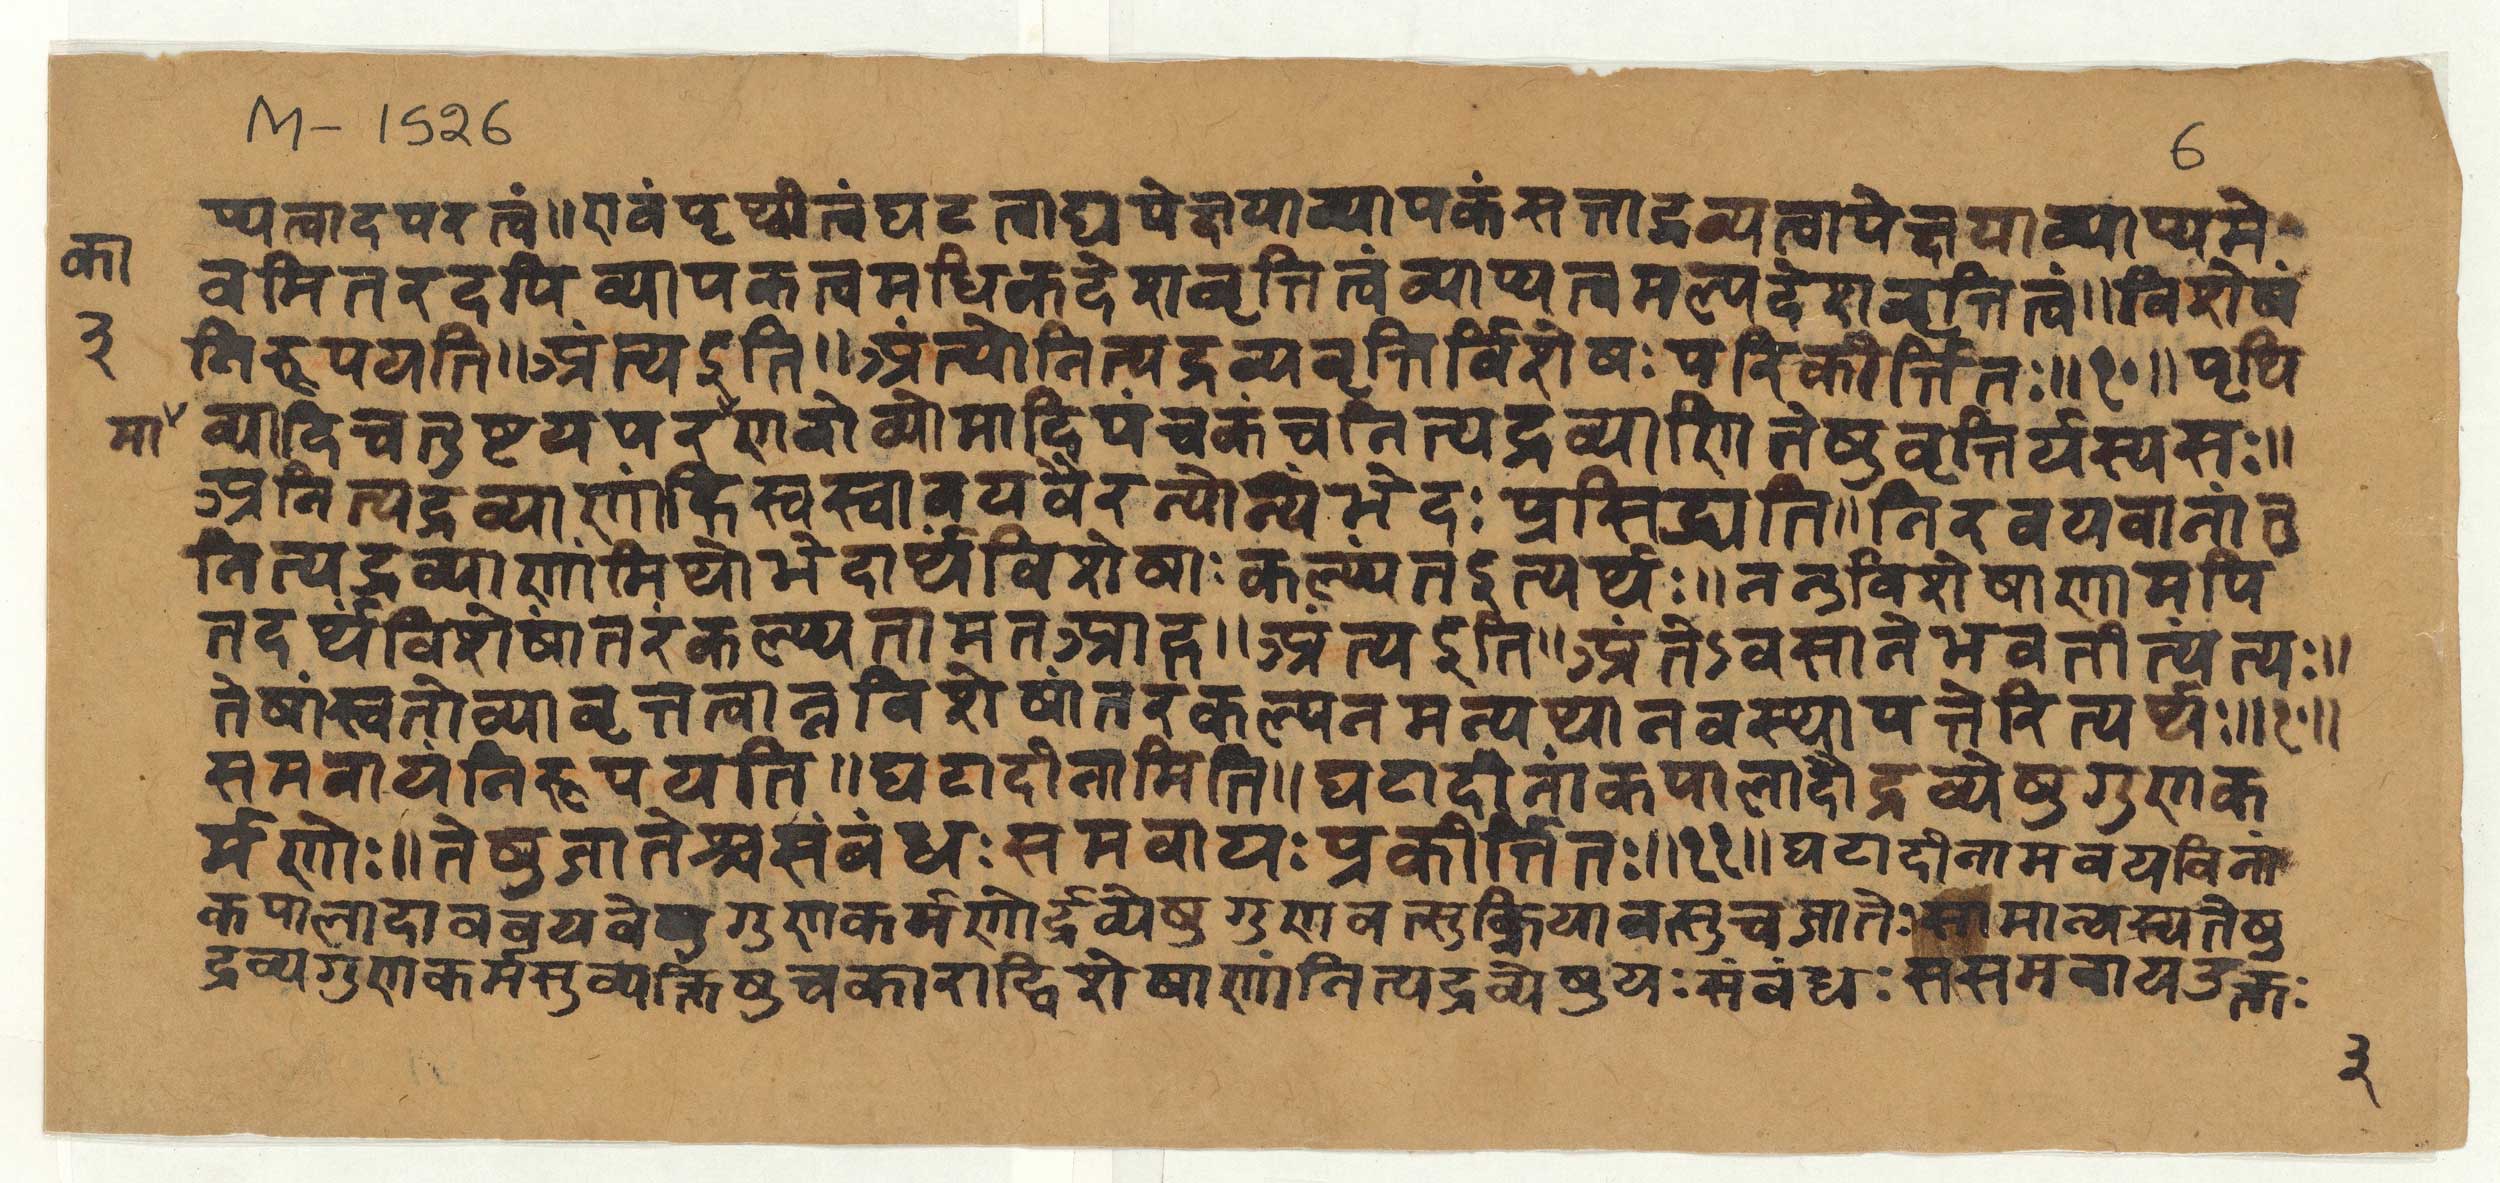 M-1526
6
प्यत्वादपरत्वं॥एवंपृथ्वीत्वंघटत्वाद्यपेक्षयाव्यापकंसत्ताद्रव्यत्वापेक्षयाव्याप्यमे
का
वमितरदपिव्यापकत्वमधिकदेशवृत्तित्वंव्याप्यत्वमल्पदेशवृत्तित्वं॥विशेषं
३
निरूपयति॥अंत्यइति॥अंत्योनित्यद्रव्यवृत्तिर्विशेषःपरिकीर्त्तितः॥१०॥पृथि
मा
व्यादिचतुष्टयपरणवोव्योमादिपंचकंचनित्यद्रव्याणितेषुवृत्तिर्यस्यसः॥
अनित्यद्रव्याणांहिस्वस्वावयवैरन्योन्यंभेदःप्रसिद्ध्यति॥निरवयवानांतु
नित्यद्रव्याणांमिथोभेदार्थंविशेषाःकल्प्यंतइत्यर्थः॥ननुविशेषाणामपि
तदर्थंविशेषांतरंकल्प्यतामतआह॥अंत्यइति॥अंतेऽवसानेभवतीत्यंत्यः॥
तेषांस्वतोव्यावृत्तत्वान्नविशेषांतरकल्पनमन्यथानवस्थापत्तेरित्यर्थः॥१०॥
समवायंनिरूपयति॥घटादीनामिति॥घटादीनांकपालादौद्रव्येषुगुणक
र्मणोः॥तेषुजातेश्चसंबंधःसमवायःप्रकीर्त्तितः॥११॥घटादीनामवयविनां
कपालादाववयवेषुगुणकर्मणोर्द्रव्येषुगुणवत्सुक्रियावत्सुचजातेःसामान्यस्यतेषु
द्रव्यगुणकर्मसुव्यक्तिषुचकाराद्विशेषाणांनित्यद्रव्येषुयःसंबंधःससमवायउक्तः
३